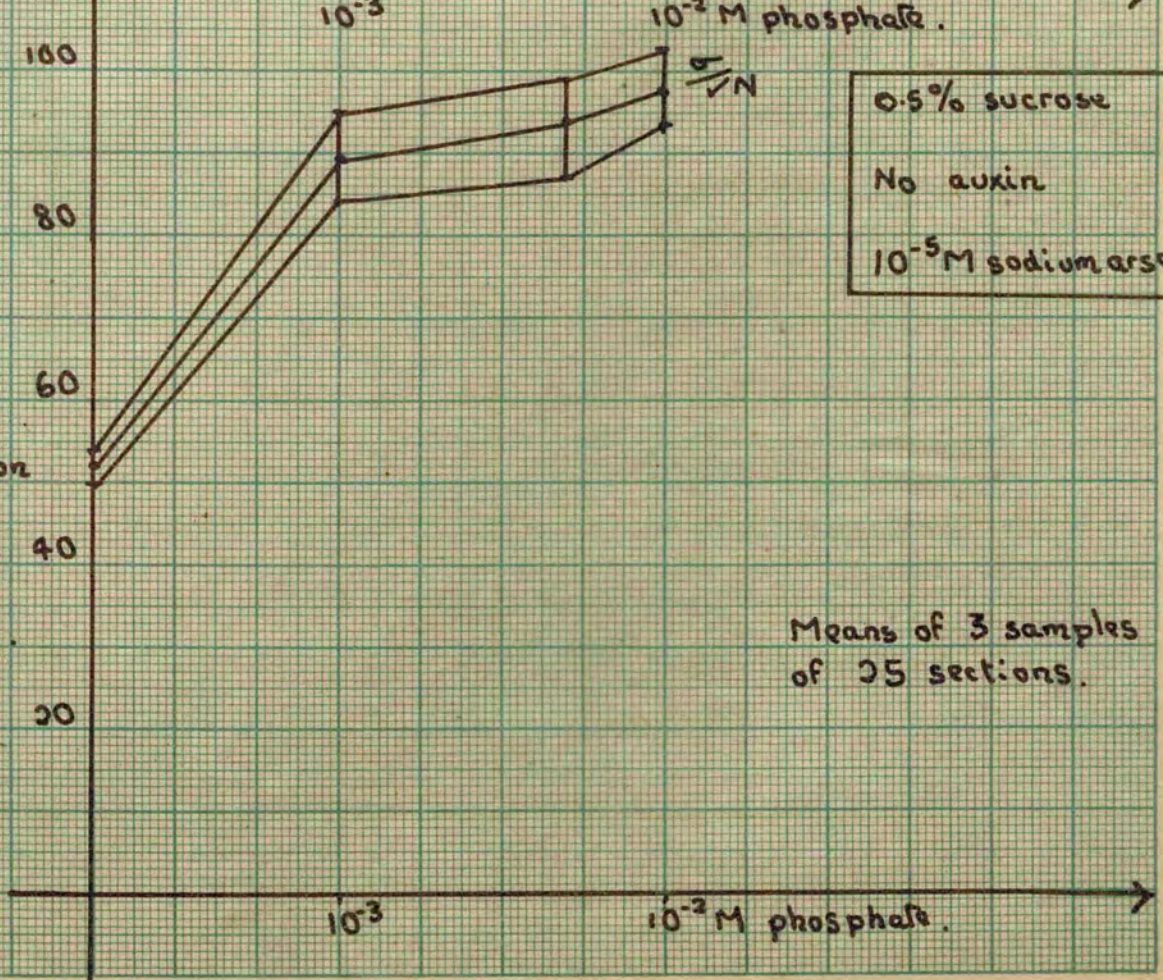 10⁻³ 10⁻² M phosphate.
100
σ/√N
0.5% sucrose
No auxin
80
10⁻⁵M sodium arse
60
on
40
Means of 3 samples
of 25 sections.
20
10⁻³ 10⁻² M phosphate.